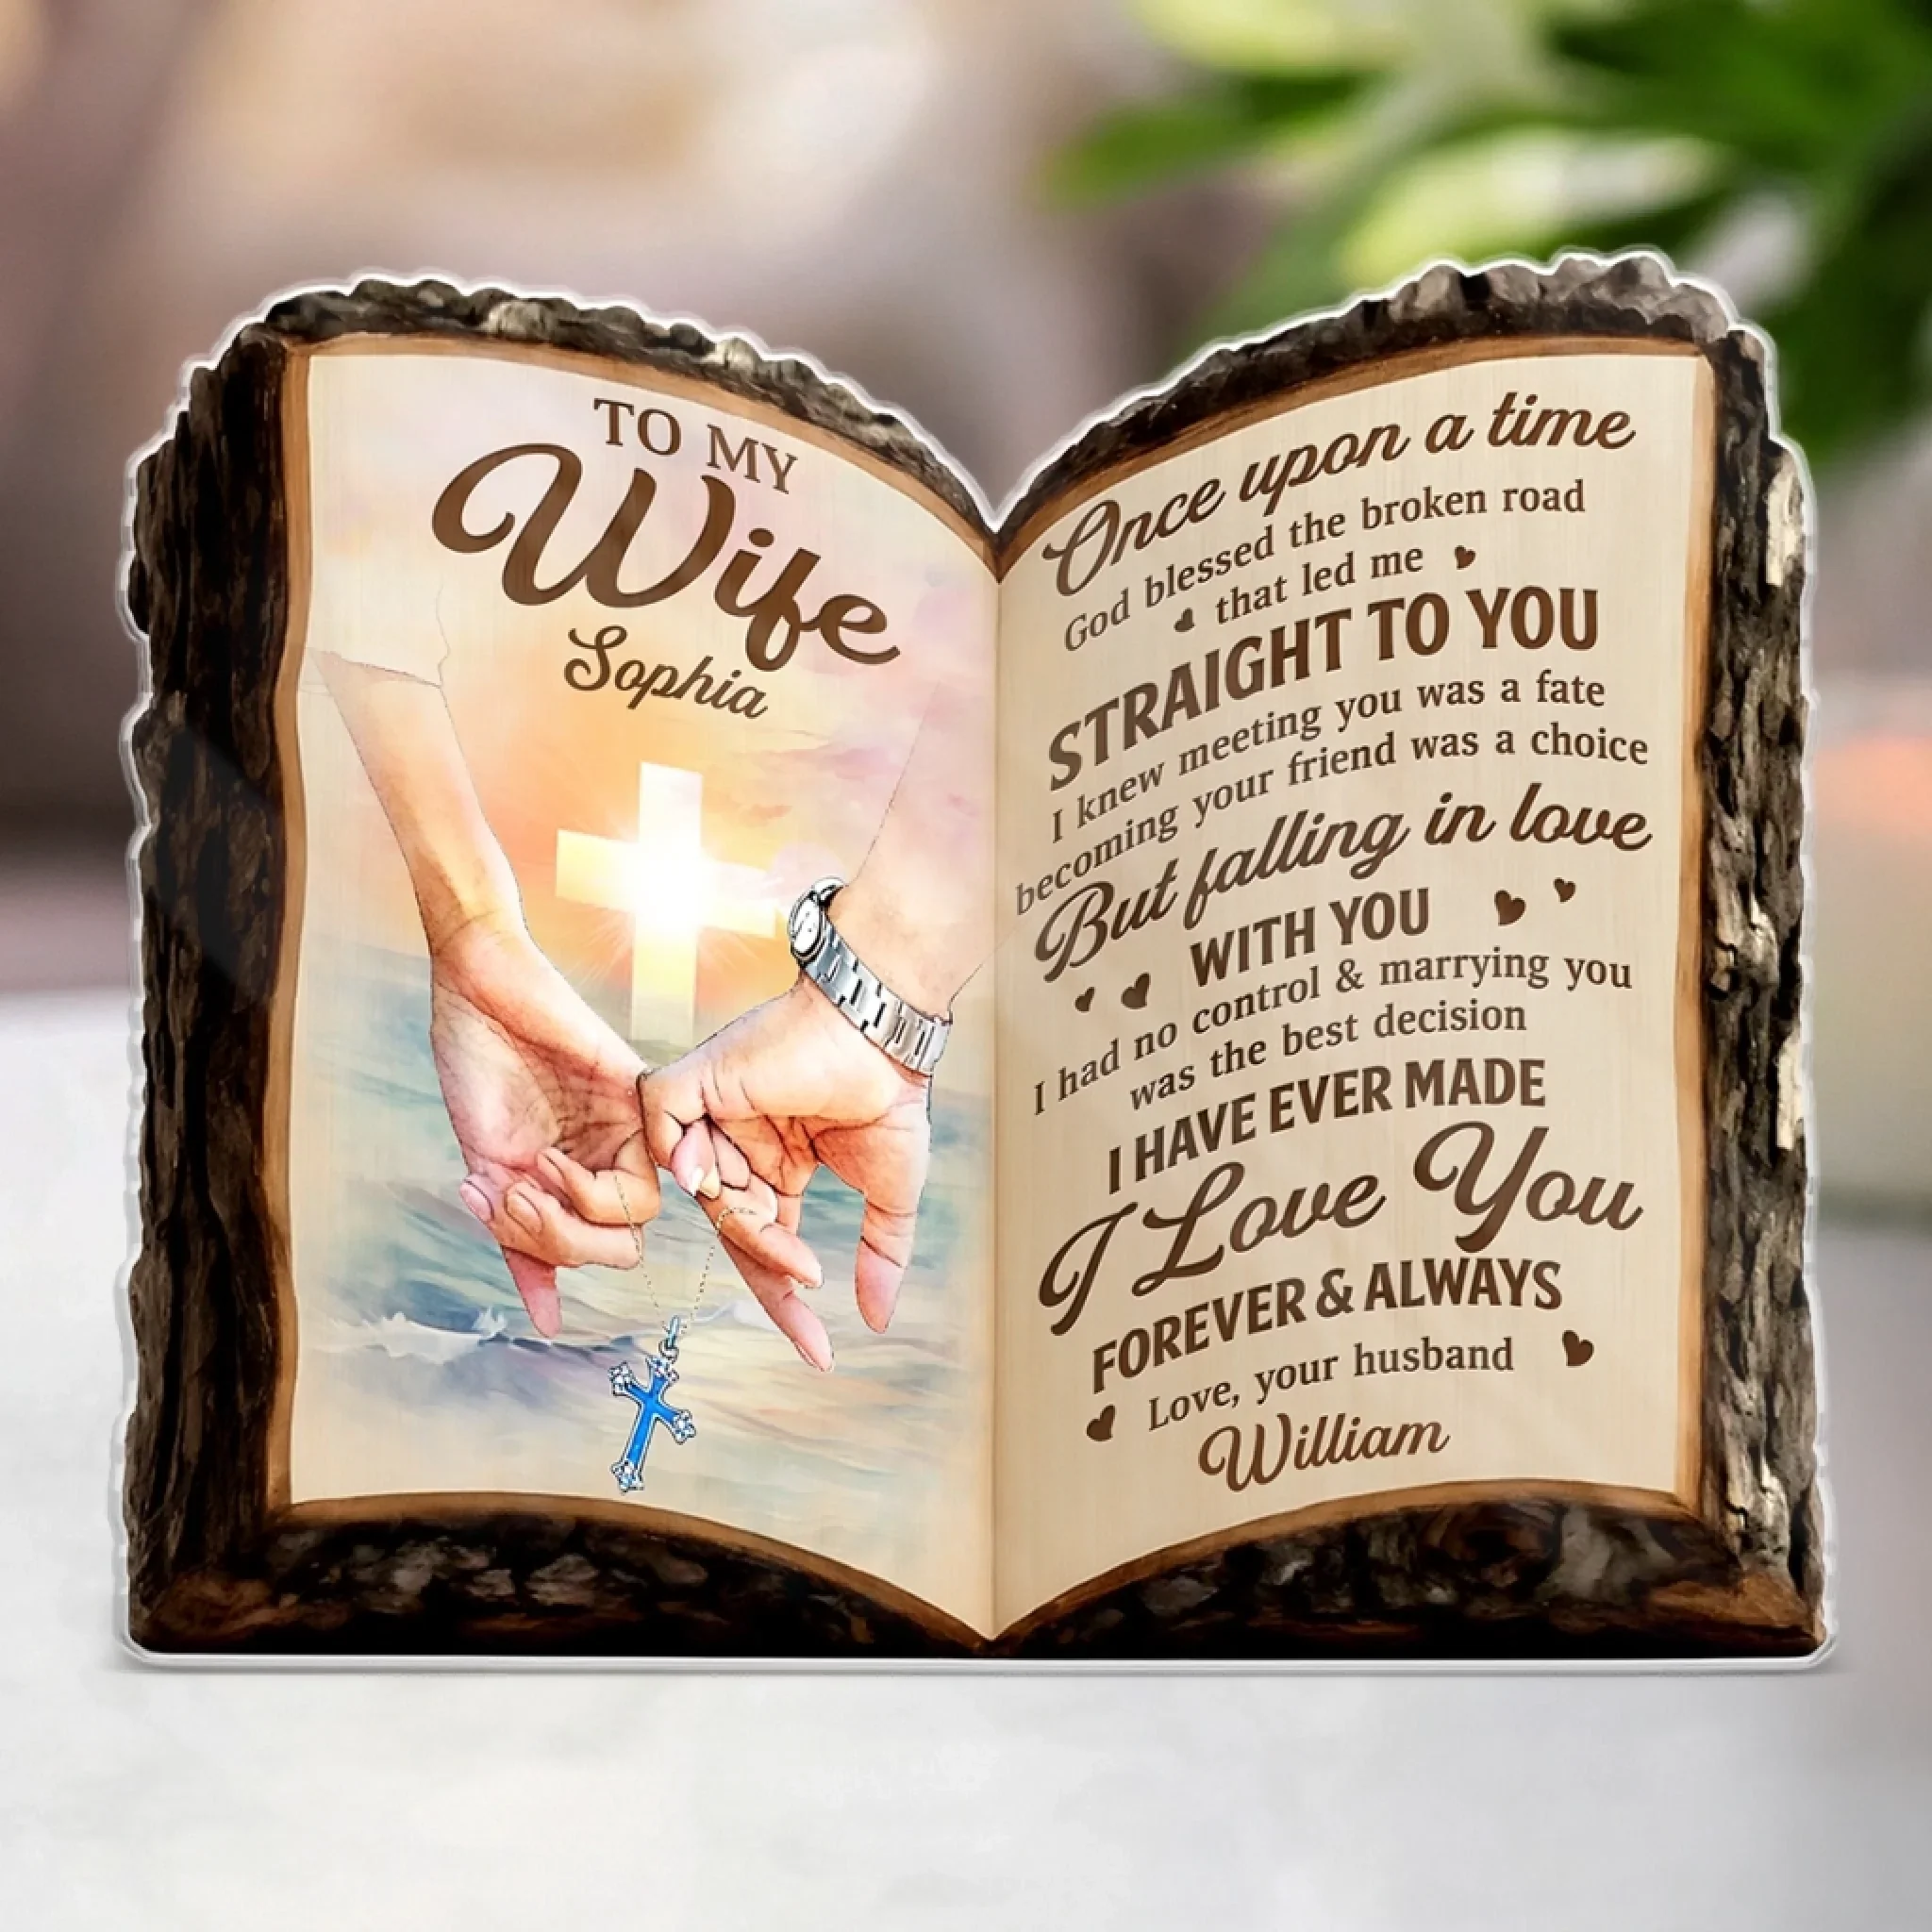 TO MY
Wife
Sophia
Once upon a time
God blessed the broken road
that led me
STRAIGHT TO YOU
I knew meeting you was a fate
becoming your friend was a choice
But falling in love
WITH YOU
I had no control & marrying you
was the best decision
I HAVE EVER MADE
I Love You
FOREVER & ALWAYS
Love, your husband
William